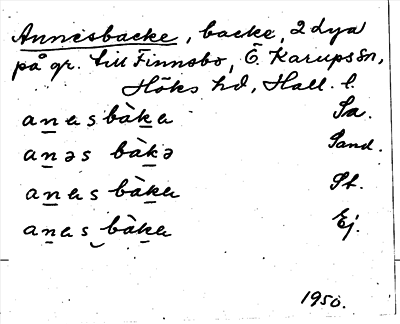 Annesbacke, backe, 2 dya
på gr. till Finnsbo, Ö. Karups sn,
Höks hd, Hall. l.
anas bàka Sa.
anəs bàkə Sand.
anas bàka St.
anas bàka Ej.
1950.